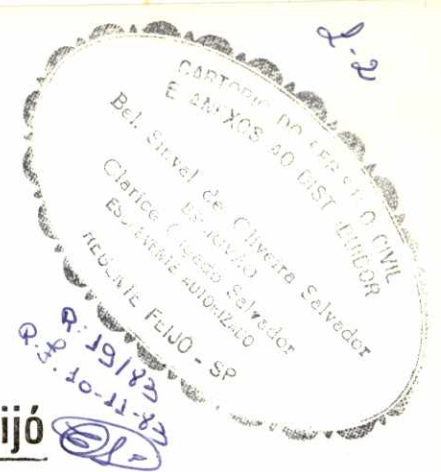 L-2
CARTORIO DO SERVIÇO CIVIL
E ANEXOS AO DISTRIBUIDOR
Bel. Sinval de Oliveira Salvador
ESCRIVÃO
Clarice Salvador
ESCREVENTE AUTORIZADO
REGENTE FEIJÓ - SP
R. 19/83
R.F. 10-11-83
ijó